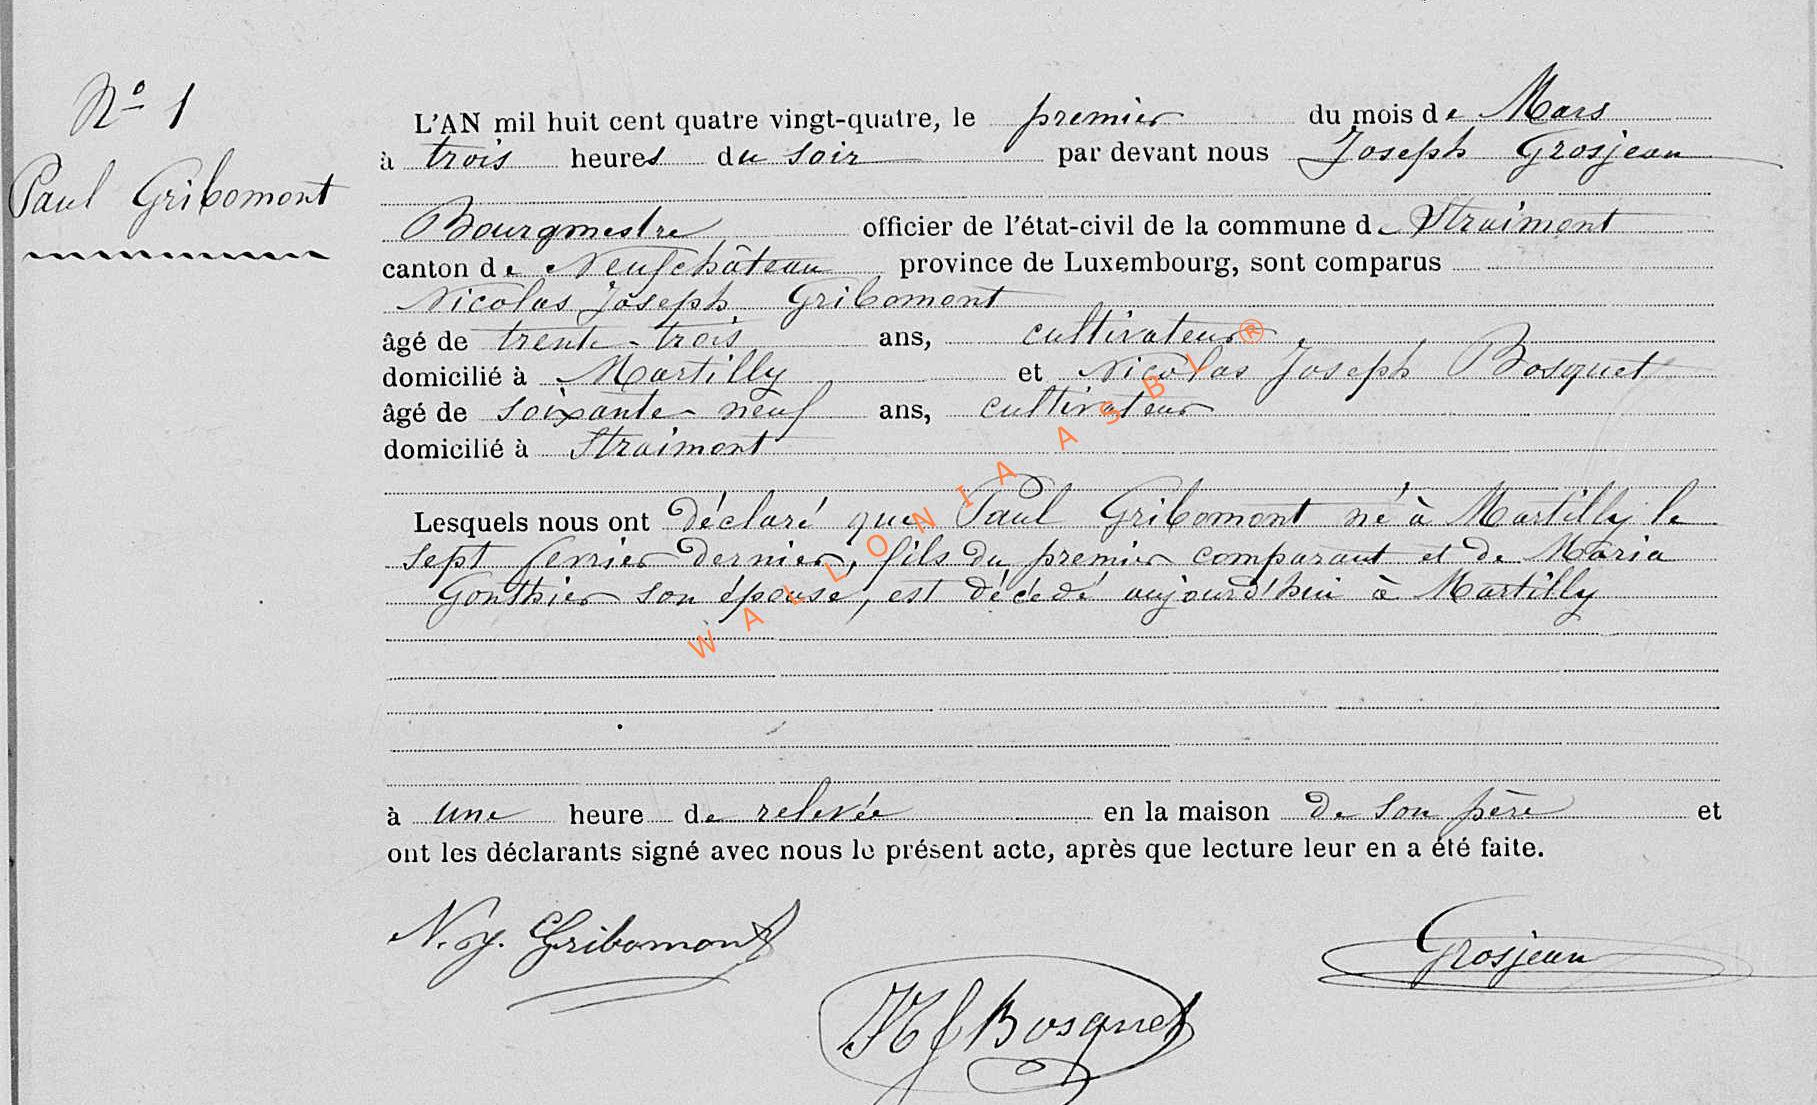 N° 1
Paul Gribomont
L'AN mil huit cent quatre vingt-quatre, le premier du mois de Mars
à trois heures du soir par devant nous Joseph Grosjean
Bourgmestre officier de l'état-civil de la commune de Straimont
canton de Neufchâteau province de Luxembourg, sont comparus
Nicolas Joseph Gribomont
âgé de trente-trois ans, cultivateur
domicilié à Martilly et Nicolas Joseph Bosquet
âgé de soixante-neuf ans, cultivateur
domicilié à Straimont
Lesquels nous ont déclaré que Paul Gribomont né à Martilly le
sept fevrier dernier, fils du premier comparant et de Maria
Gonthier son épouse, est décédé aujourd'hui à Martilly
à une heure de relevée en la maison de son père et
ont les déclarants signé avec nous le présent acte, après que lecture leur en a été faite.
N. J. Gribomont
Grosjean
NJ Bosquet
WALLONIA ASBL ®